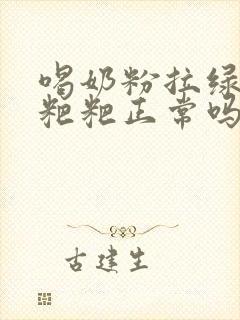 喝奶粉拉绿
粑粑正常吗
古建生